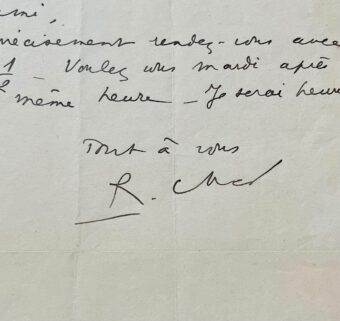 mi,
récisément rendez-vous avec
1 – Voulez vous mardi après
2 même heure – Je serai heure
Tout à vous
R.